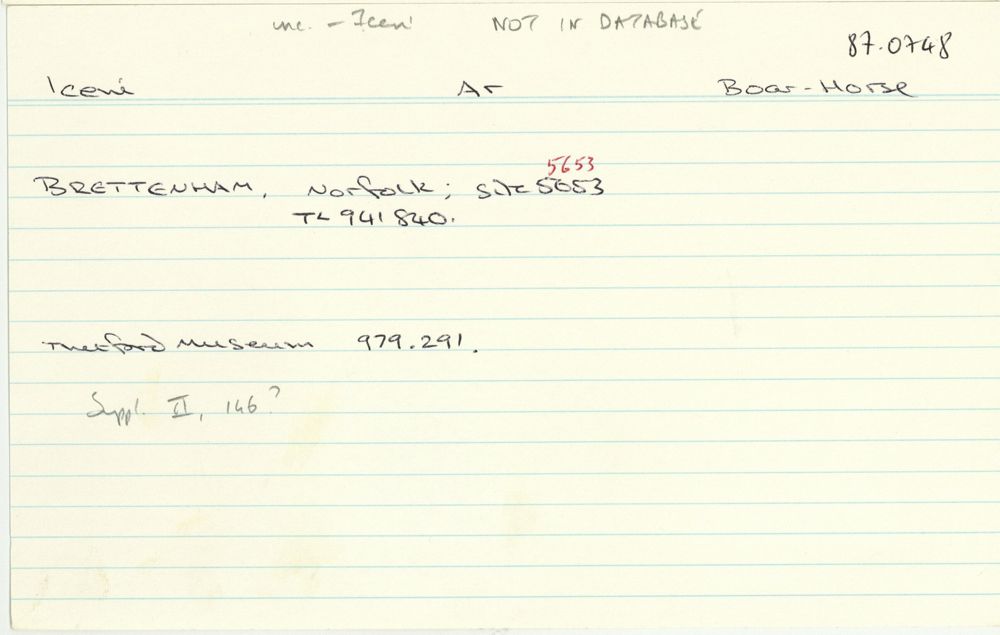 unc. - Iceni NOT IN DATABASE
87.0748
Iceni Ar Boar-Horse
5653
BRETTENHAM, Norfolk; Site 5653
TL 941 840.
Thetford Museum 979.291.
Suppl. II, 146?